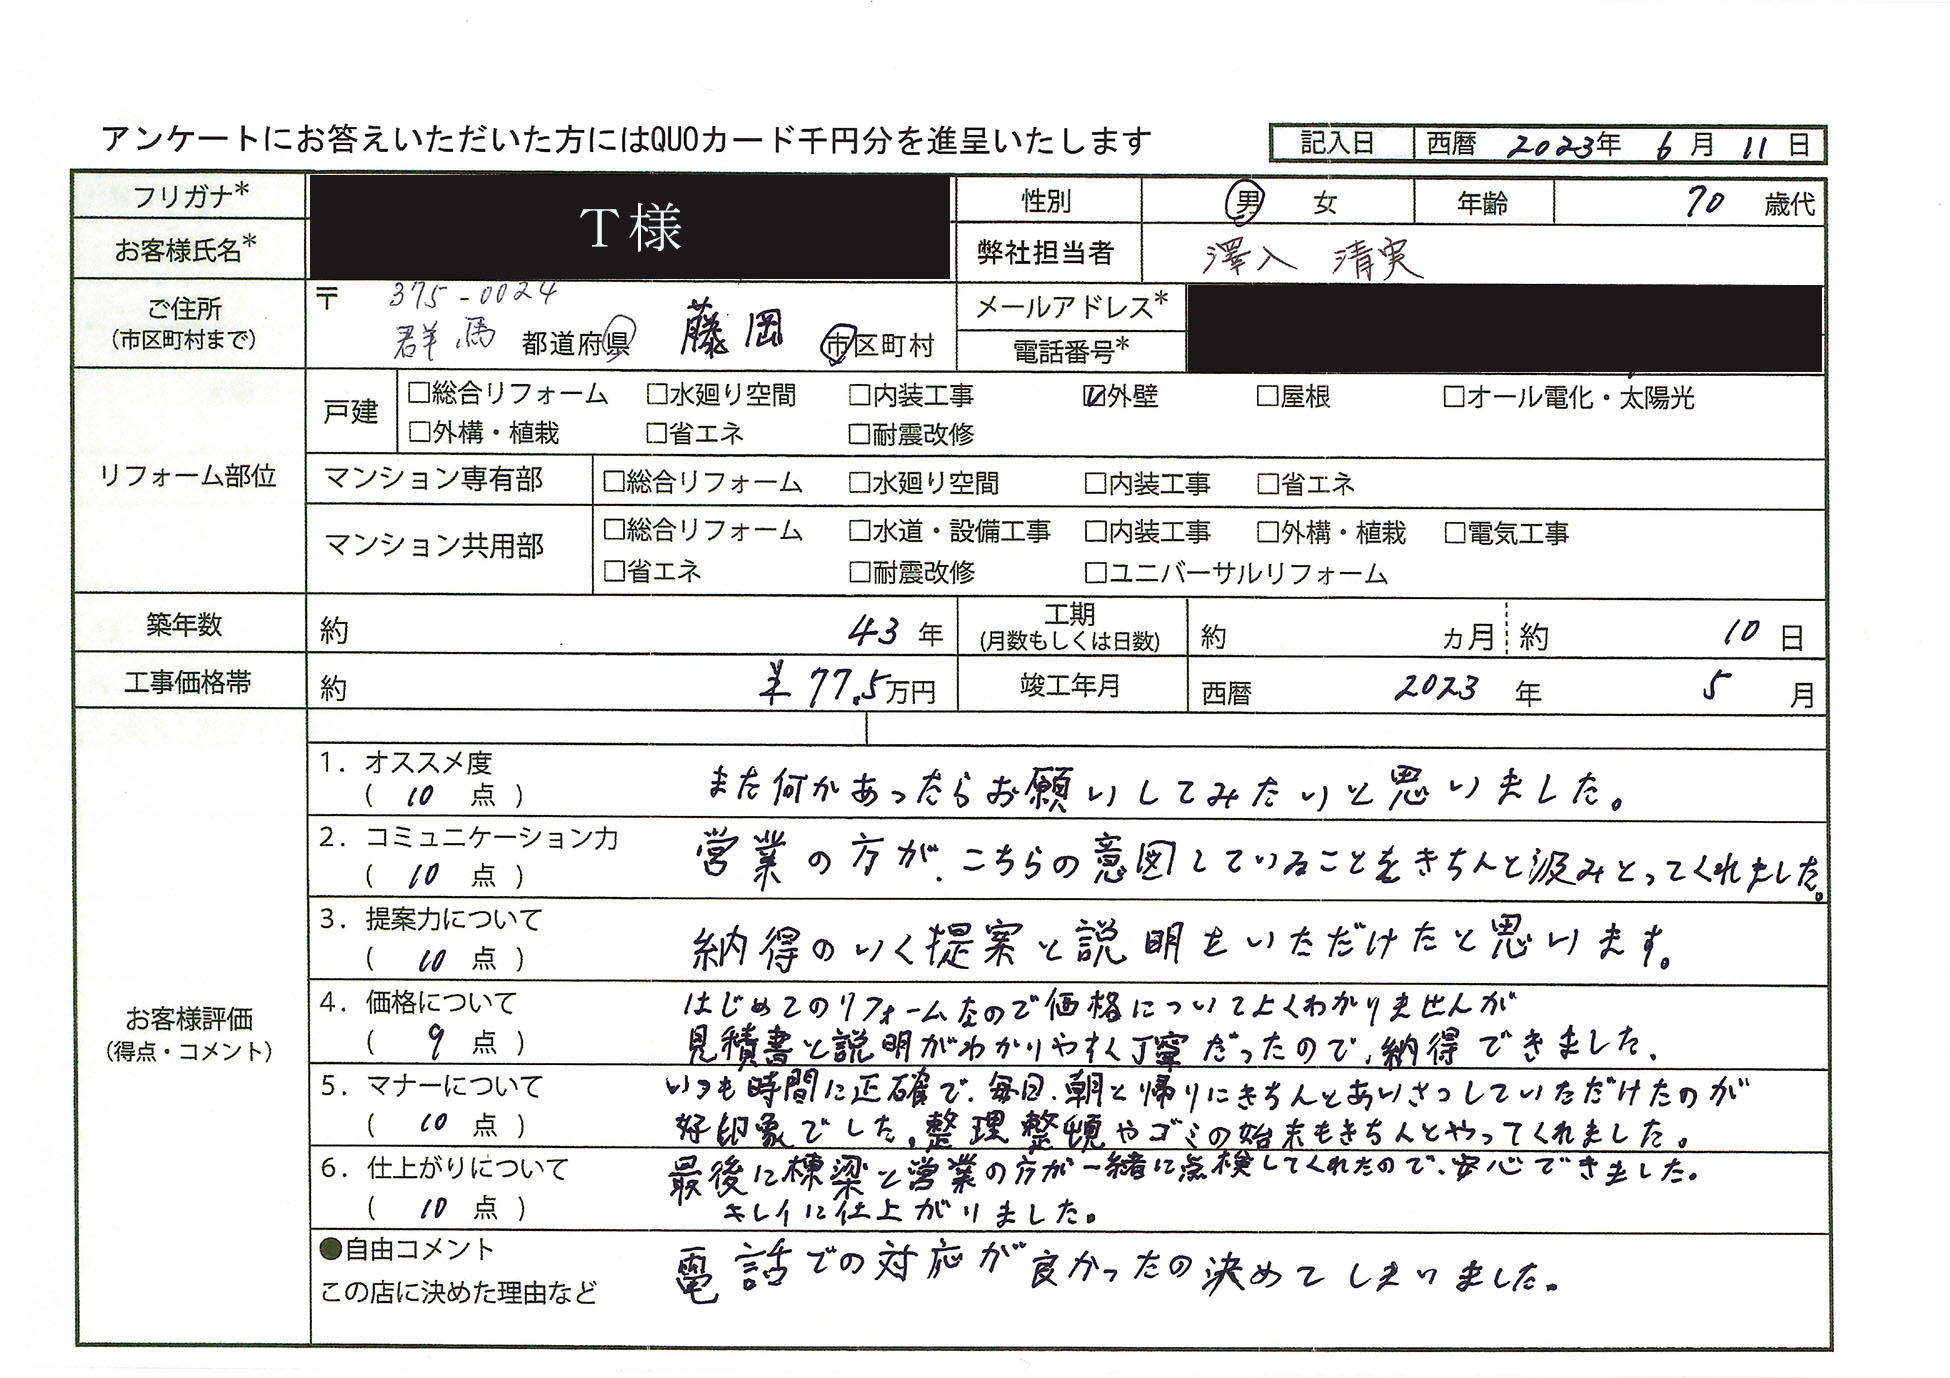 アンケートにお答えいただいた方にはQUOカード千円分を進呈いたします
記入日 西暦 2023年 6月 11日
フリガナ* T様 性別 男 女 年齢 70 歳代
お客様氏名* 弊社担当者 澤入 清実
ご住所 (市区町村まで) 〒 375-0024 メールアドレス*
群馬 都道府県 藤岡 市区町村 電話番号*
リフォーム部位
戸建 □総合リフォーム □水廻り空間 □内装工事 ☑外壁 □屋根 □オール電化・太陽光
□外構・植栽 □省エネ □耐震改修
マンション専有部 □総合リフォーム □水廻り空間 □内装工事 □省エネ
マンション共用部 □総合リフォーム □水道・設備工事 □内装工事 □外構・植栽 □電気工事
□省エネ □耐震改修 □ユニバーサルリフォーム
築年数 約 43 年 工期 (月数もしくは日数) 約 カ月 約 10 日
工事価格帯 約 ¥77.5万円 竣工年月 西暦 2023 年 5 月
お客様評価
(得点・コメント)
1. オススメ度
( 10 点 ) また何かあったらお願いしてみたいと思いました。
2. コミュニケーション力
( 10 点 ) 営業の方が、こちらの意図していることをきちんと汲みとってくれました。
3. 提案力について
( 10 点 ) 納得のいく提案と説明をいただけたと思います。
4. 価格について はじめてのリフォームなので価格についてよくわかりませんが
( 9 点 ) 見積書と説明がわかりやすく丁寧だったので、納得できました。
5. マナーについて いつも時間に正確で、毎日、朝と帰りにきちんとあいさつしていただけたのが
( 10 点 ) 好印象でした。整理整頓やゴミの始末もきちんとやってくれました。
6. 仕上がりについて 最後に棟梁と営業の方が一緒に点検してくれたので、安心できました。
( 10 点 ) キレイに仕上がりました。
●自由コメント 電話での対応が良かったの決めてしまいました。
この店に決めた理由など